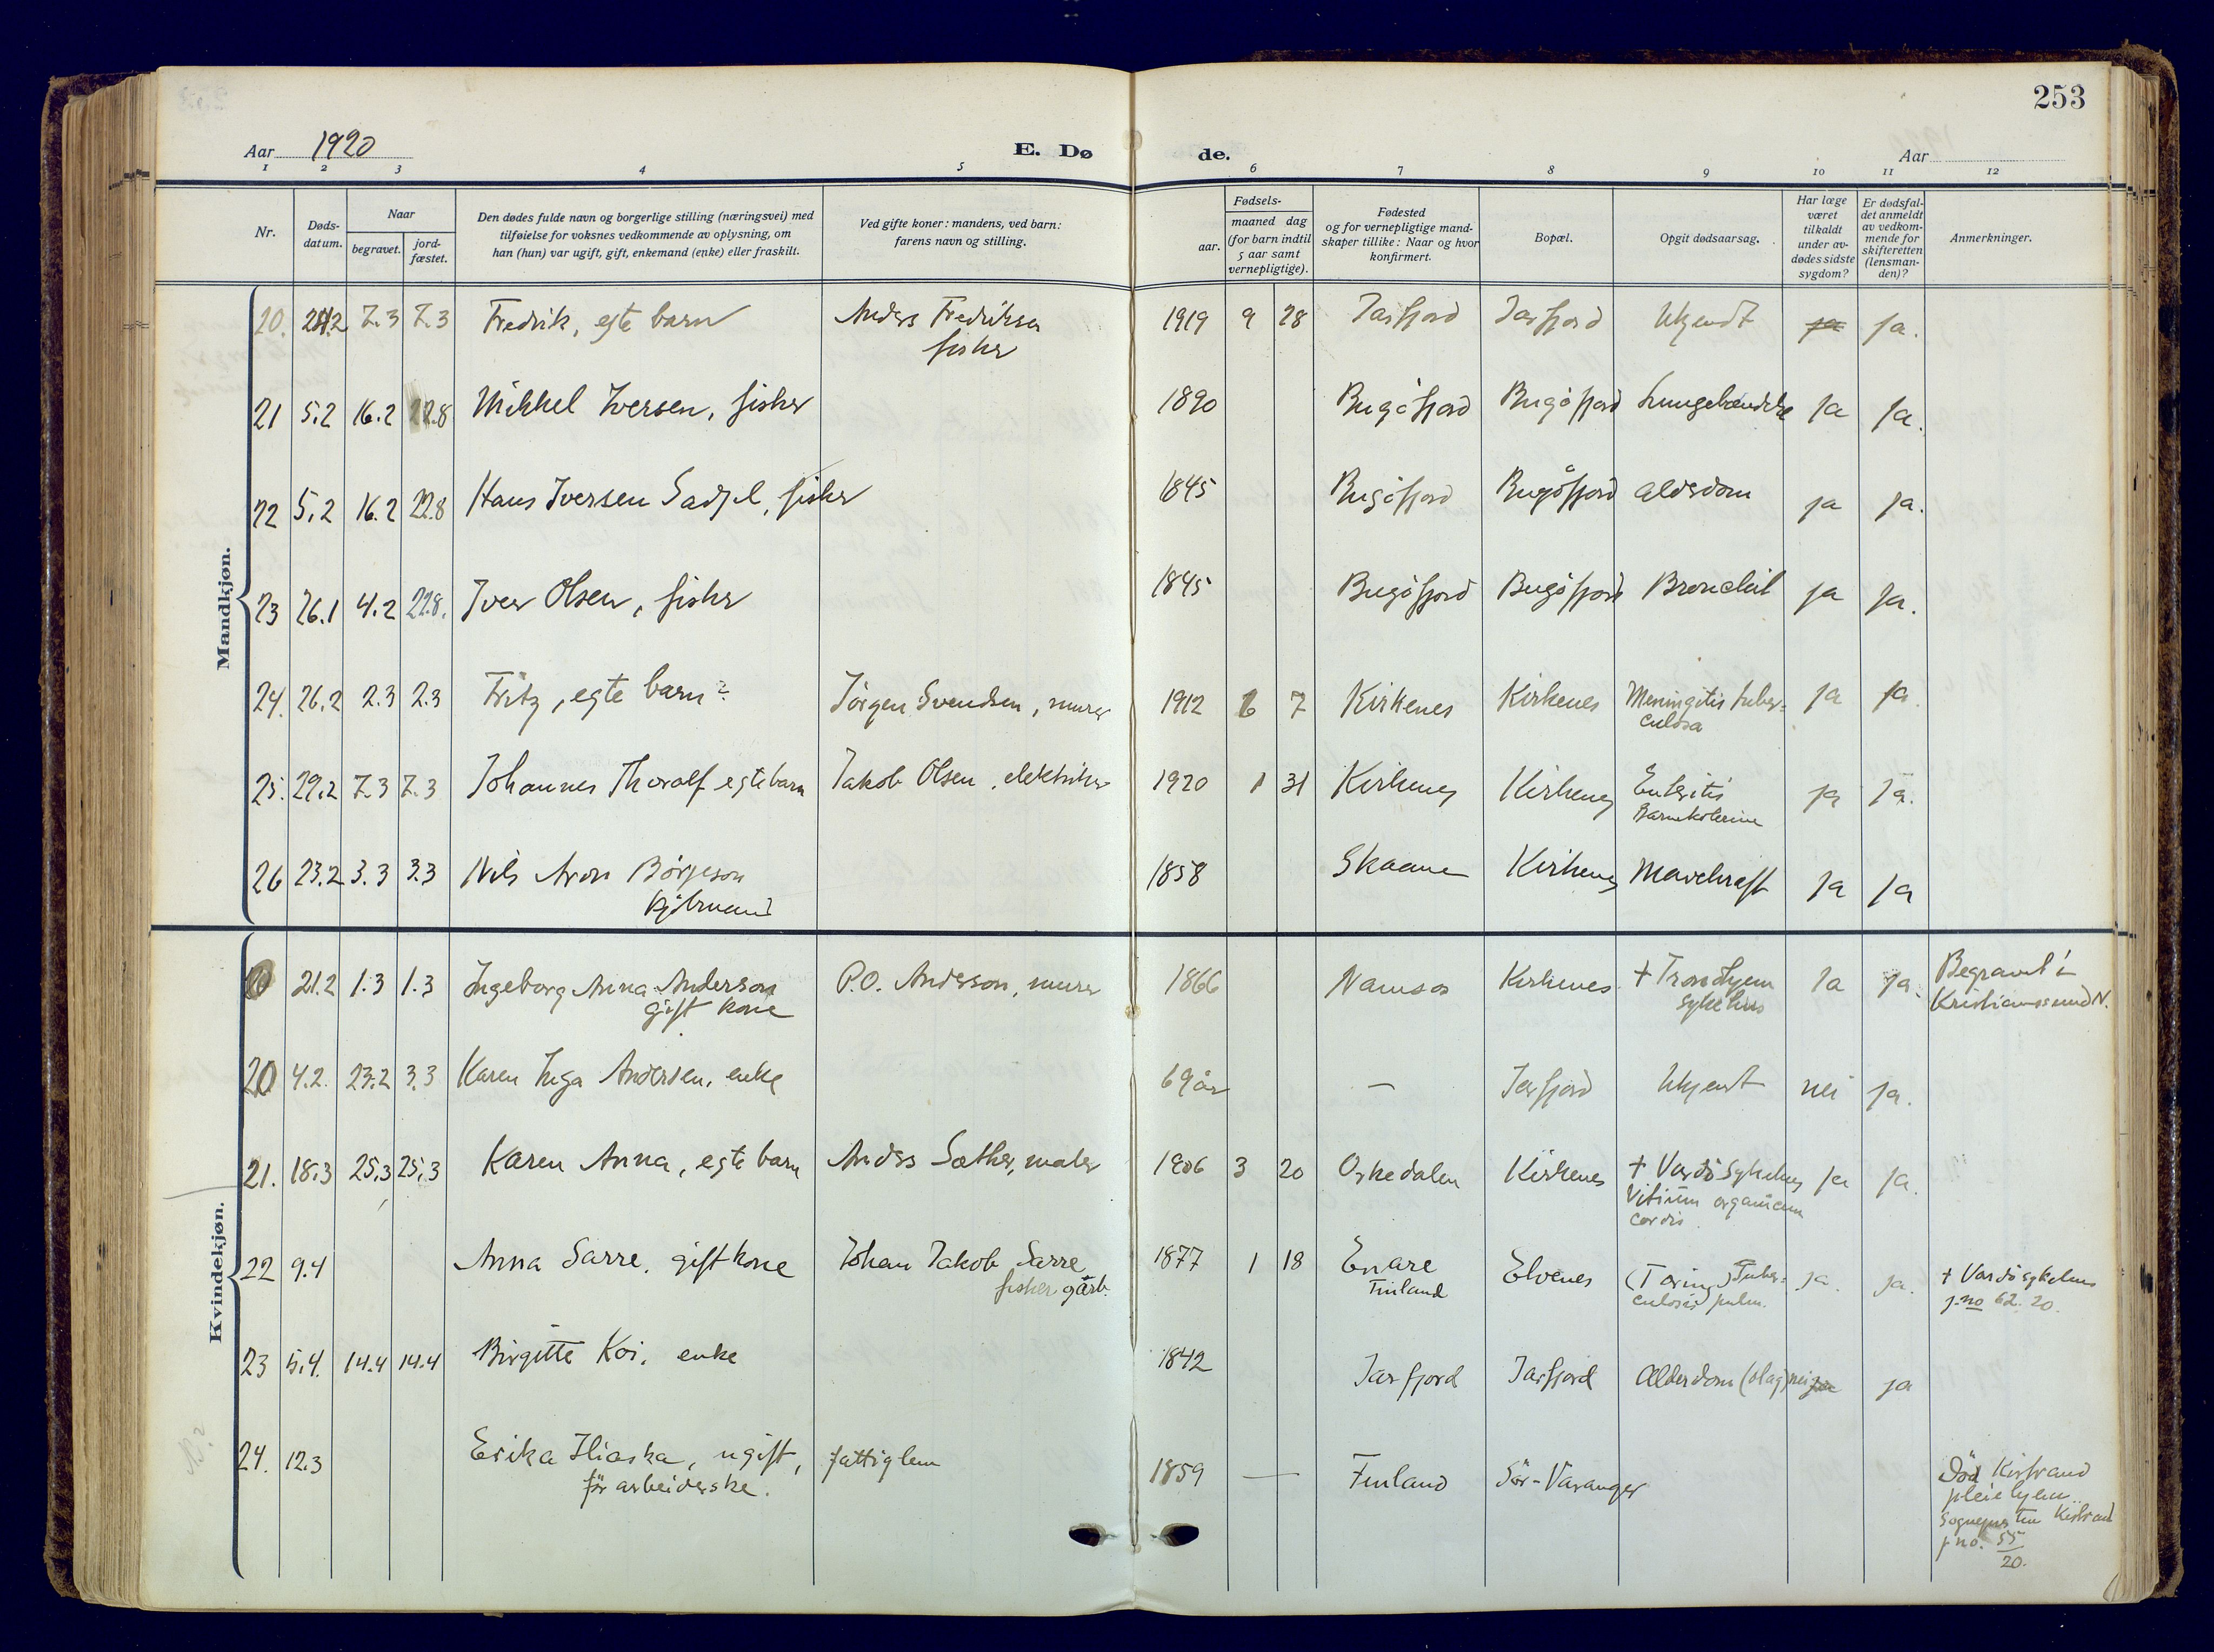 253
Aar 1920
E. Dø de.
Aar
1 2 3 4 5 6 7 8 9 10 11 12
Nr.
Døds-
datum.
Naar
begravet.
jord-
fæstet.
Den dødes fulde navn og borgerlige stilling (næringsvei) med
tilføielse for voksnes vedkommende av oplysning, om
han (hun) var ugift, gift, enkemand (enke) eller fraskilt.
Ved gifte koner: mandens, ved barn:
farens navn og stilling.
Fødsels-
aar.
maaned dag
(for barn indtil
5 aar samt
vernepligtige).
Fødested
og for vernepligtige mand-
skaper tillike: Naar og hvor
konfirmert.
Bopæl.
Opgit dødsaarsag.
Har læge
været
tilkaldt
under av-
dødes sidste
sygdom?
Er dødsfal-
det anmeldt
av vedkom-
mende for
skifteretten
(lensman-
den)?
Anmerkninger.
Mandkjøn.
20. 24.2 7.3 7.3 Fredrik, egte barn Anders Fredriksen 1919 9 28 Jarfjord Jarfjord Ukjendt ja ja.
fisker
21 5.2 16.2 22.8 Mikkel Iversen, fisker 1890 Bugöfjord Bugöfjord ja ja.
22 5.2 16.2 22.8 Hans Iversen Sadjel, fisker 1845 Bugöfjord Bugöfjord alderdom ja ja.
23 26.1 4.2 22.8. Iver Olsen, fisker 1845 Bugöfjord Bugöfjord Bronchit ja ja.
24. 26.2 2.3 2.3 Fritz, egte barn Jörgen Svendsen, murer 1912 6 7 Kirkenes Kirkenes Meningitis tuber=
culosa ja ja.
25. 29.2 7.3 7.3 Johannes Thoralf egte barn Jakob Olsen, elektriker 1920 1 31 Kirkenes Kirkenes Enteritis ja ja.
Barnekolerine
26 23.2 3.3 3.3 Nils Aron Börjeson 1858 Skaane Kirkenes Mavekræft ja ja
Kvindekjøn.
21.2 1.3 1.3 Ingeborg Anna Anderson P.O. Anderson, murer 1866 Namsos Kirkenes + Trondhjem ja ja. Begravet i
gift kone sykehus Kristianssund N.
20 4.2. 23.2 3.3 Karen Inga Andersen, enke 69 år — Jarfjord Ukjent nei ja.
21. 18.3 25.3 25.3 Karen Anna, egte barn Anders Sæther, maler 1906 3 20 Orkedalen Kirkenes + Vardö Sykehus ja ja.
Vitium organicum
cordis.
22 9.4 Anna Sarre, gift kone Johan Jakob Sarre 1877 1 18 Enare Elvenes (Tæring) Tuber= ja. ja. + Vardö sykehus
fisker gårb. Finland culosis pulm. j.no 62. 20.
23 5.4. 14.4 14.4 Birgitte Koi, enke 1842 Jarfjord Jarfjord Alderdom (slag) nei ja ja
24. 12.3 Erika Iliaska, ugift, fattiglem 1859 — Finland Sör-Varanger Död Kistrand
för arbeiderske. pleiehjem
Sognepresten Kistrand
j no. 55
20.